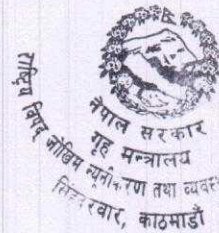 नेपाल सरकार
गृह मन्त्रालय
राष्ट्रिय विपद् जोखिम न्यूनीकरण तथा
सिंहदरवार, काठमाडौं